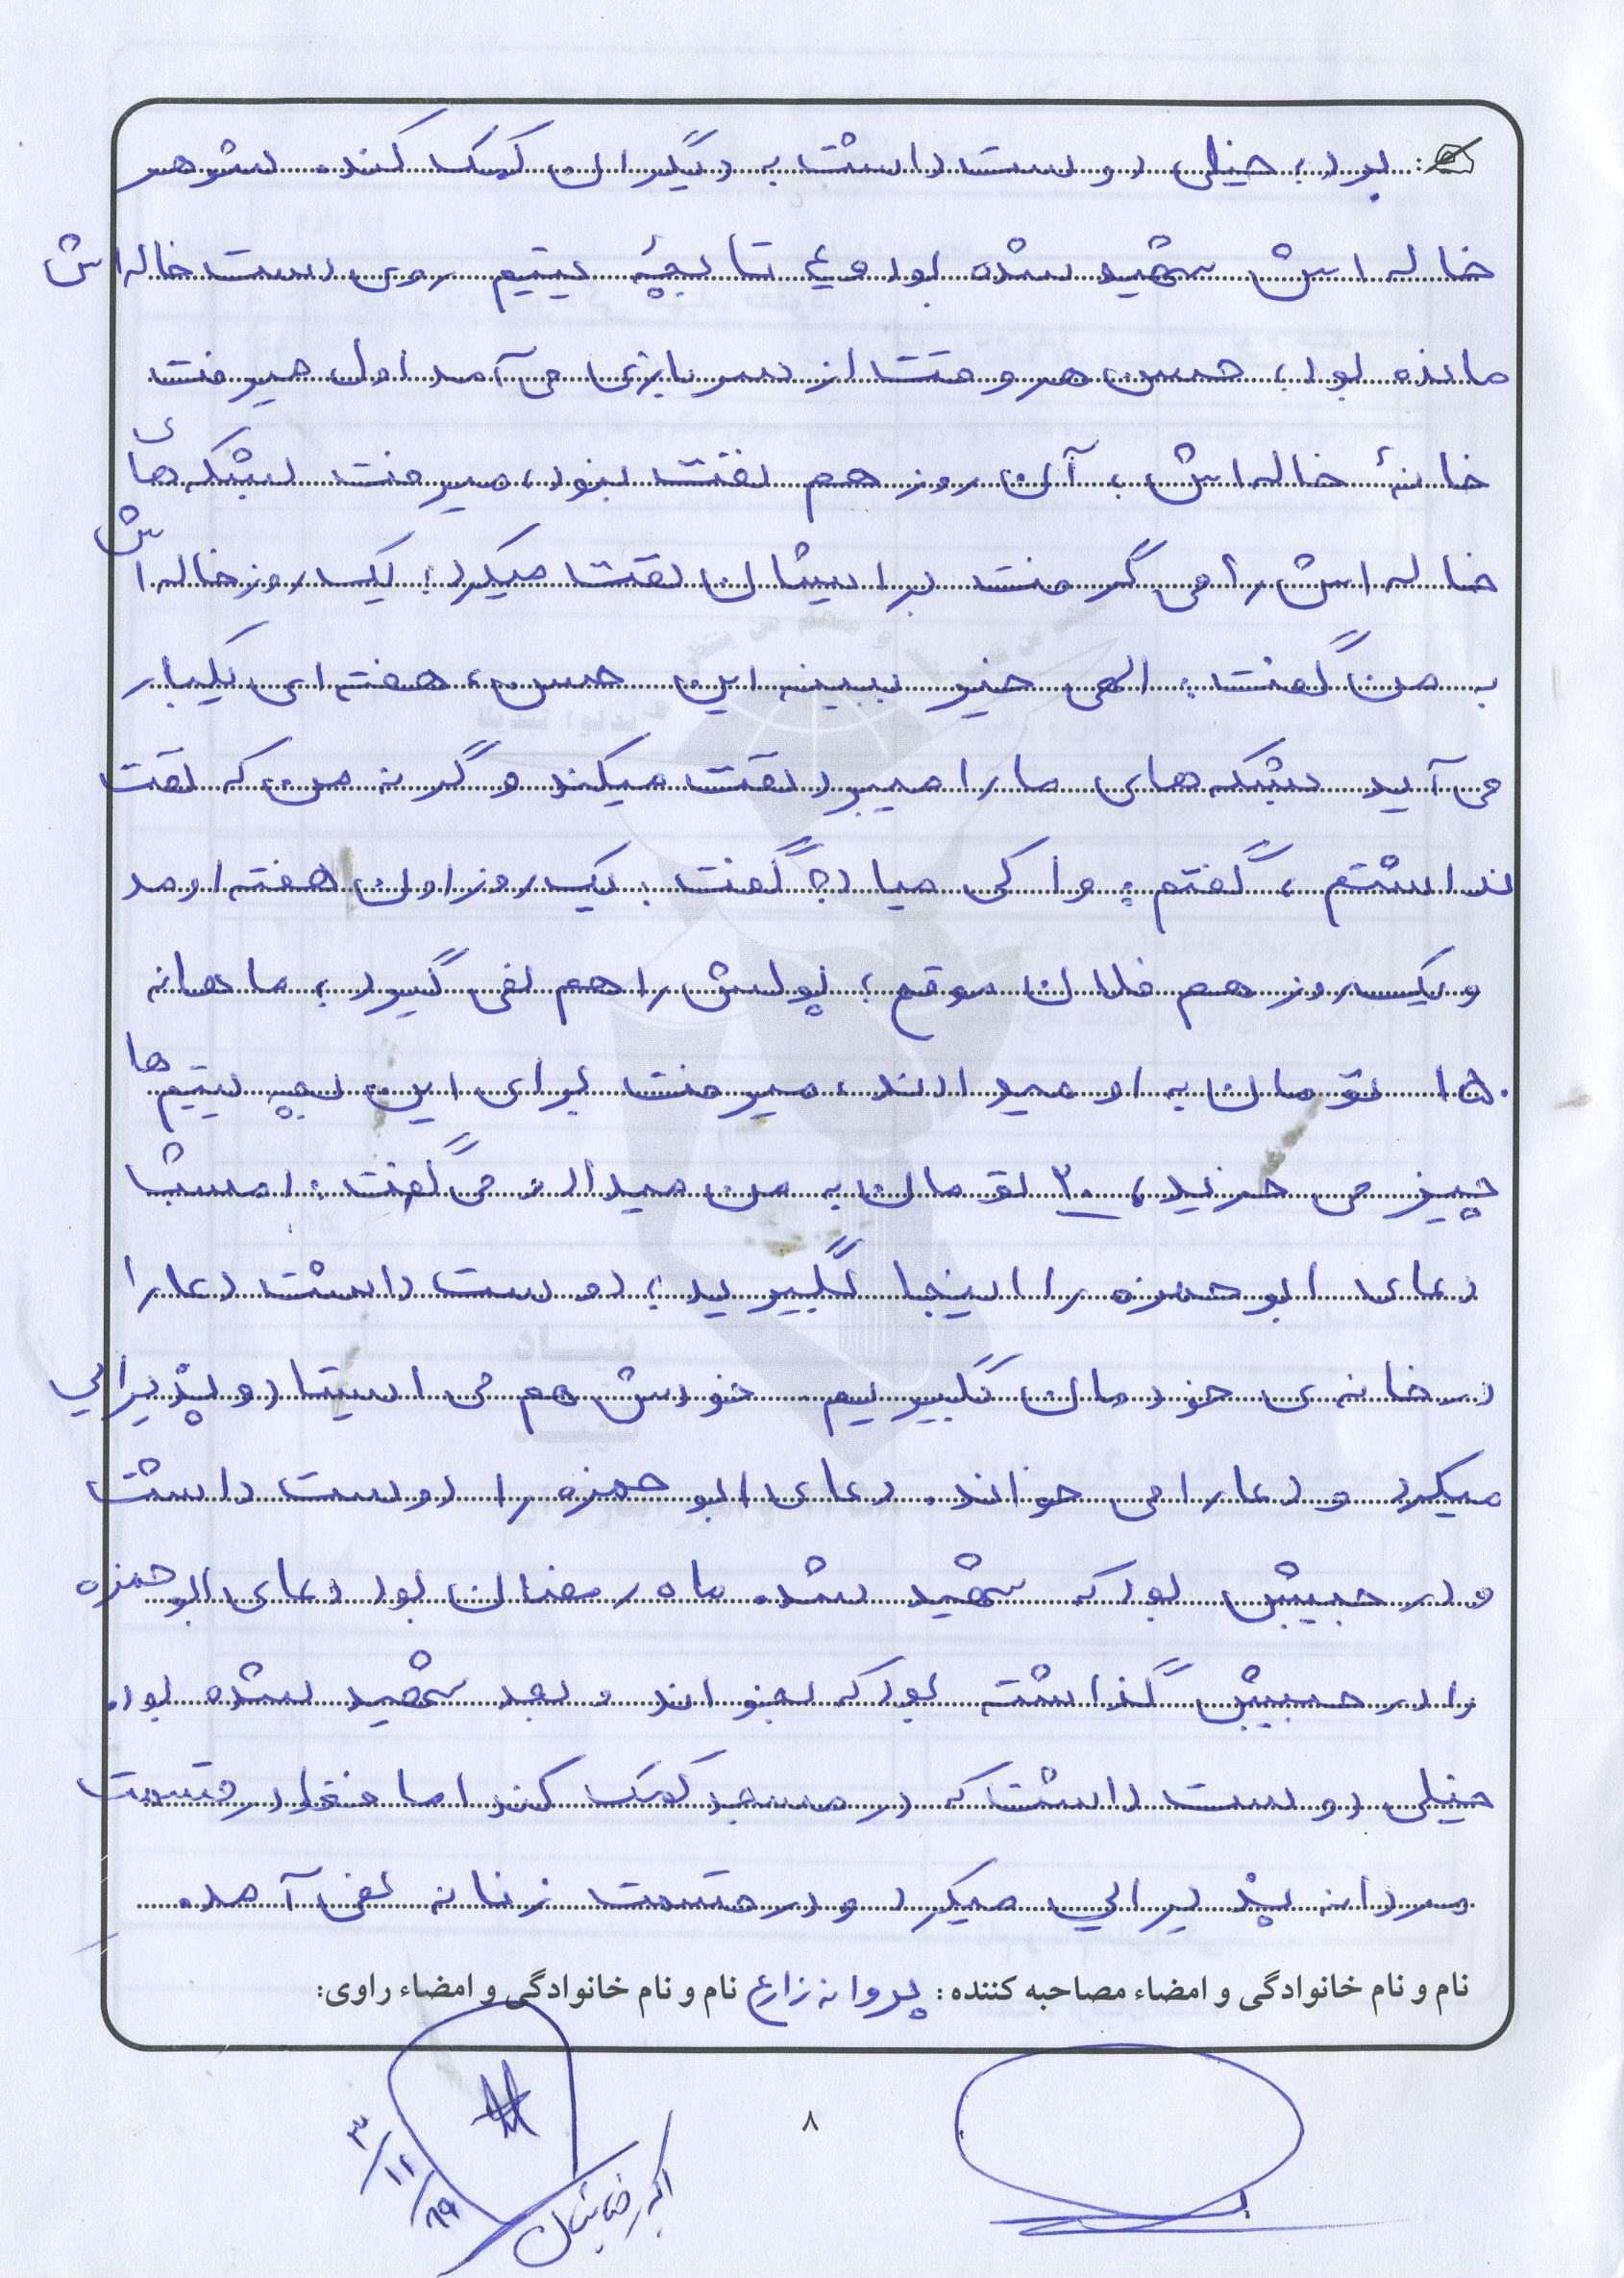 بود، خیلی دوست داشت به دیگران کمک کند. شوهر
خاله اش شهید شده بود و ۴ تا بچۀ یتیم روی دست خاله اش
مانده بود، حسن هر وقت از سربازی می آمد اول میرفت
خانۀ خاله اش، آن روز هم نفت نبود، میرفت بشکه های
خاله اش را می گرفت برایشان نفت میکرد؛ یک روز خاله اش
به من گفت: الهی خیر ببینه این حسن، هفته ای یکبار
می آید بشکه های ما را میبرد نفت میکند وگرنه من که نفت
نداشتم، گفتم: وا کی میاد؟ گفت: یک روز اول هفته اومد
و یک روز هم فلان موقع؛ پولش را هم نمی گیرد؛ ماهانه
۱۵۰ تومان به او میدادند، میرفت برای این بچه یتیم ها
چیز می خرید، ۲۰ تومان به من میداد می گفت: امشب
دعای ابوحمزه را اینجا بگیرید؛ دوست داشت دعا را
در خانه ی خودمان بگیریم. خودش هم می ایستاد و پذیرایی
میکرد و دعا را می خواند. دعای ابوحمزه را دوست داشت
و در جیبش بود که شهید شد. ماه رمضان بود دعای ابوحمزه
را در جیبش گذاشته بود که بخواند و بعد شهید شده بود.
خیلی دوست داشت که در مسجد کمک کند اما فقط در قسمت
مردانه پذیرایی میکرد و در قسمت زنانه نمی آمد.
نام و نام خانوادگی و امضاء مصاحبه کننده: پروانه زارع نام و نام خانوادگی و امضاء راوی:
۸